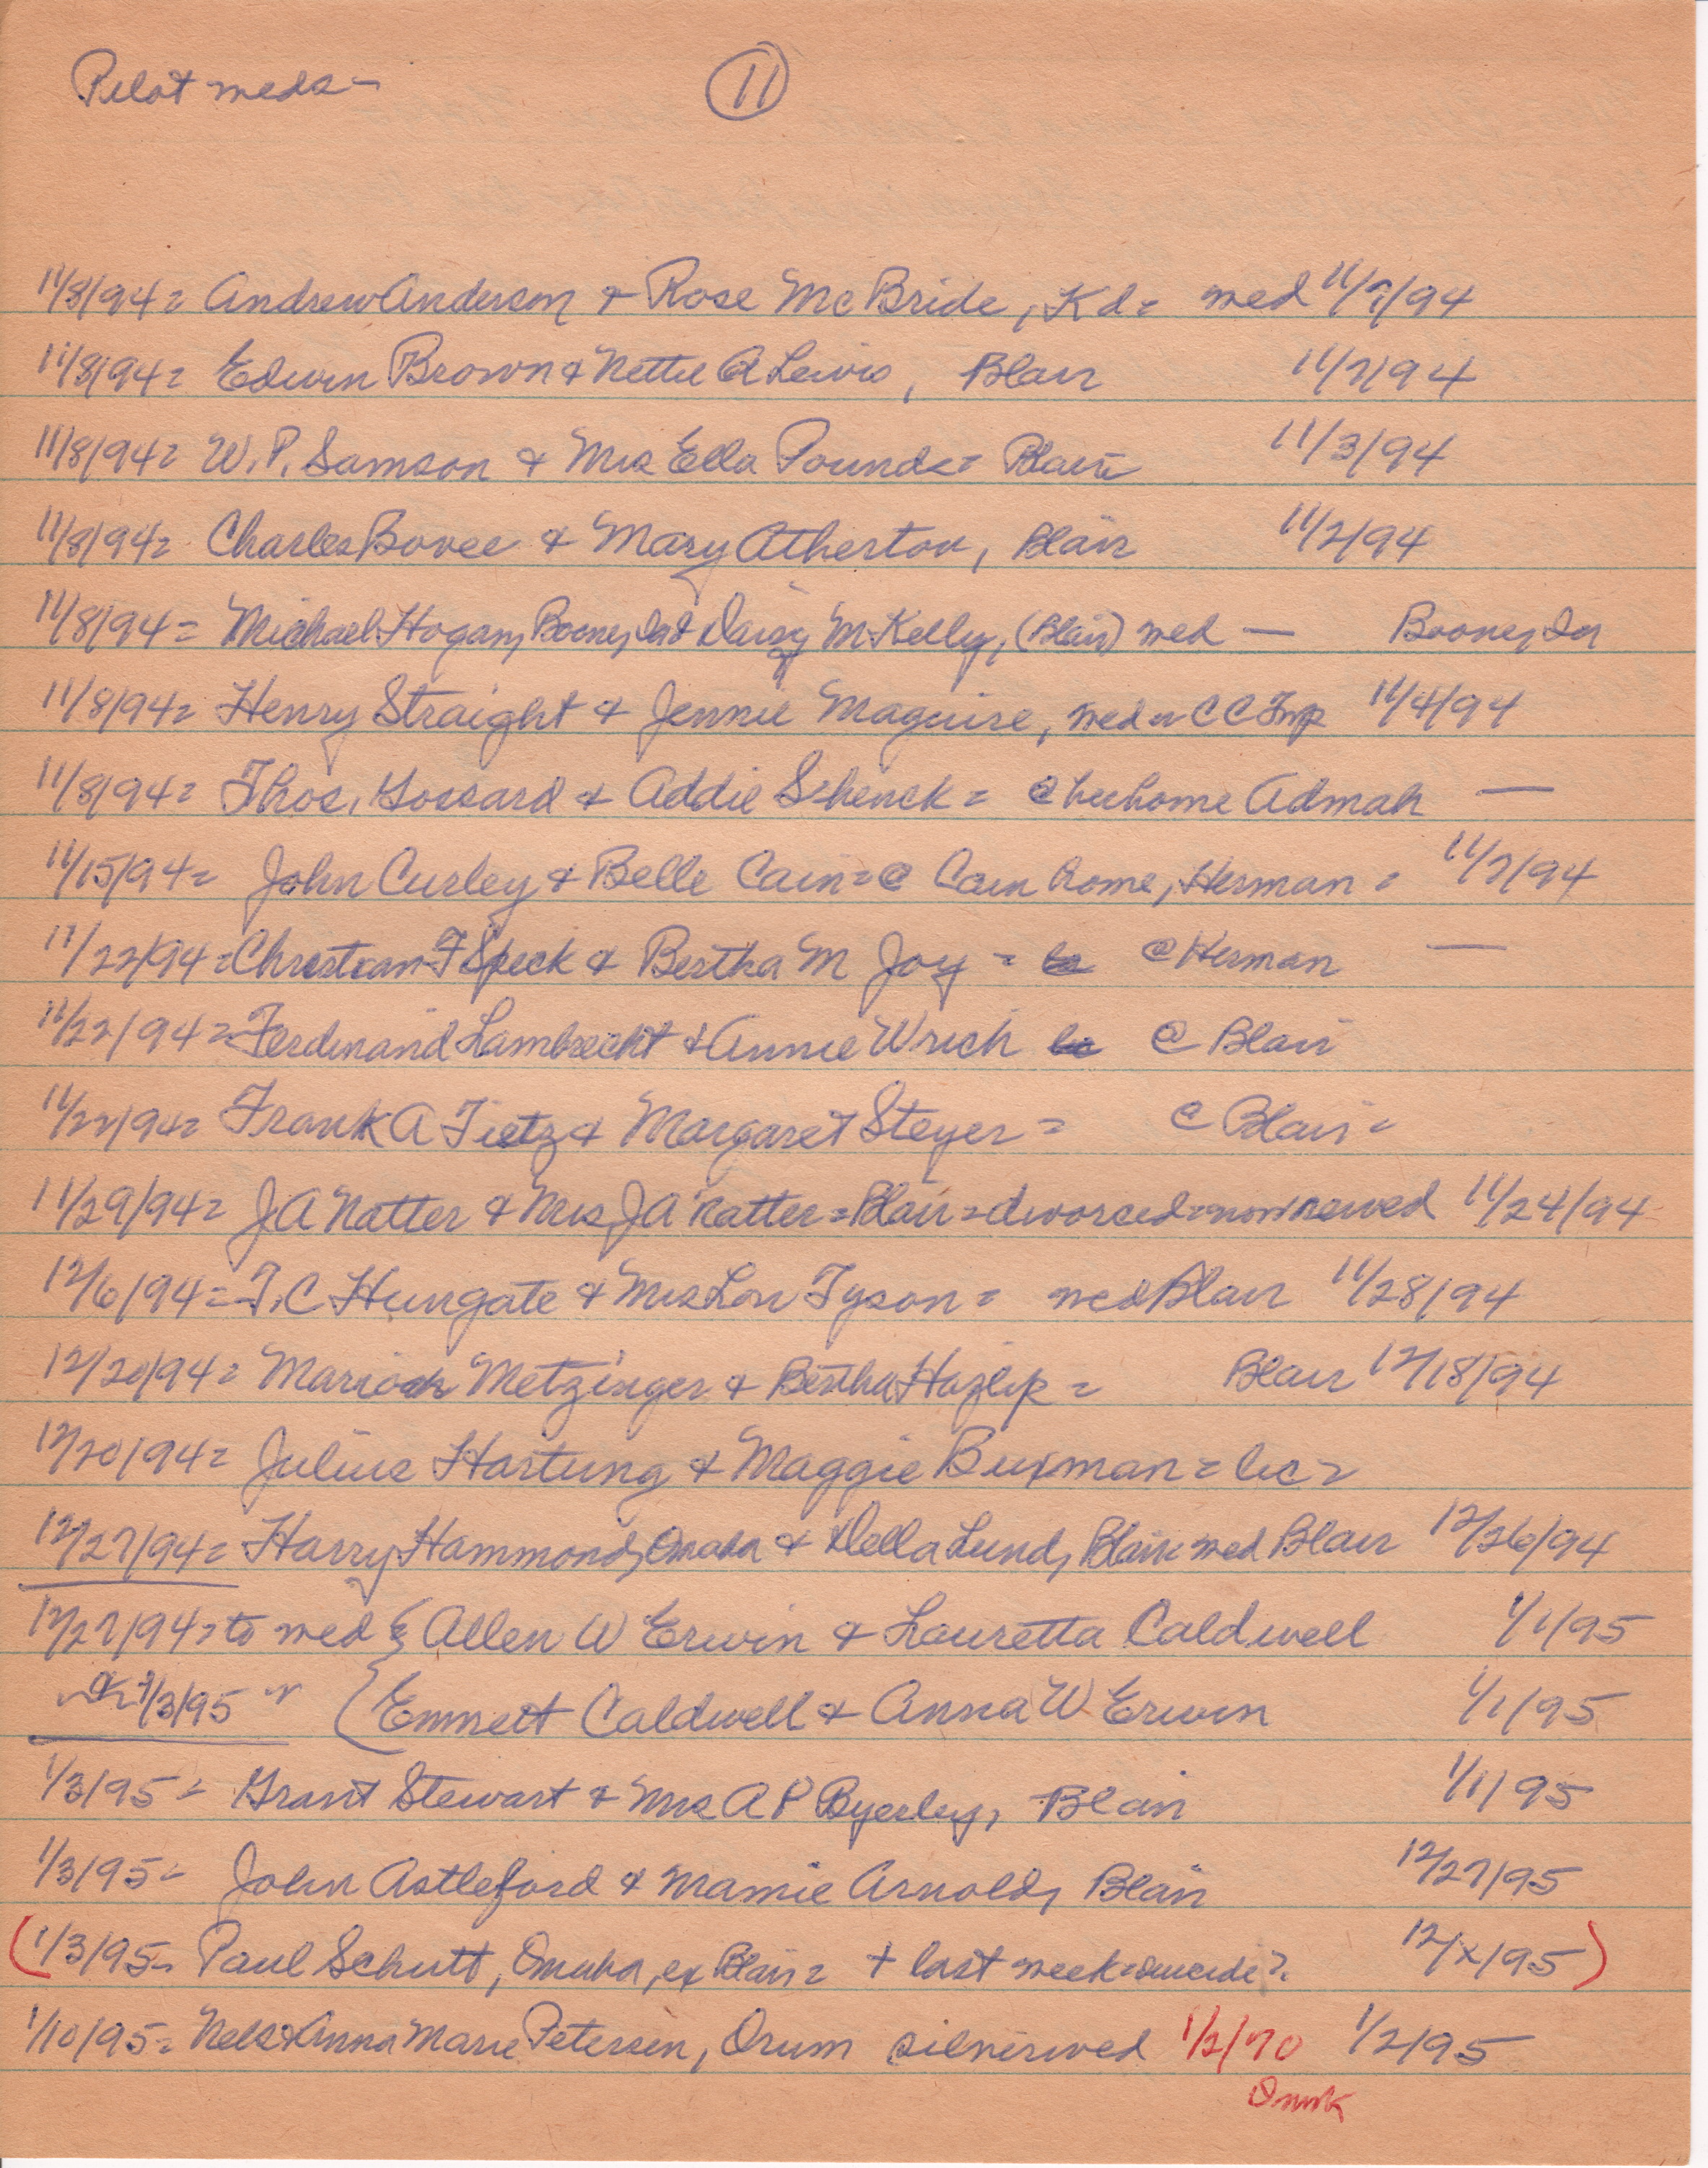 Pilot meds - 11
11/8/94 = Andrew Anderson & Rose McBride, Kd = med 11/7/94
11/8/94 = Edwin Brown & Nettie A Lewis, Blair 11/7/94
11/8/94 = W.P. Samson & Mrs Ella Pounds = Blair 11/3/94
11/8/94 = Charles Bovee & Mary Atherton, Blair 11/2/94
11/8/94 = Michael Hogan, Boone, Ia & Daisy M. Kelly, (Blair) med — Boone, Ia
11/8/94 = Henry Straight & Jennie Maguire, med CC Twp 11/4/94
11/8/94 = Thos. Gossard & Addie Schenck = @ her home Admah —
11/15/94 = John Curley & Belle Cain = @ Cain home, Herman = 11/7/94
11/22/94 = Christian F Speck & Bertha M Joy = @ Herman —
11/22/94 = Ferdinand Lambrecht & Annie Wrich @ Blair
11/22/94 = Frank A Tietz & Margaret Steyer = @ Blair =
11/29/94 = J A Natter & Mrs J A Natter = Blair = divorced = now rewed 11/24/94
12/6/94 = T. C Hungate & Mrs Lou Tyson = med Blair 11/28/94
12/20/94 = Marion Metzinger & Bertha Hazlip = Blair 12/18/94
12/20/94 = Julius Hartung & Maggie Buxman = lic =
12/27/94 = Harry Hammond, Omaha & Della Lund, Blair med Blair 12/26/94
12/27/94 = to med { Allen W Erwin & Lauretta Caldwell 1/1/95
1/3/95 " { Emmett Caldwell & Anna W Erwin 1/1/95
1/3/95 = Grant Stewart & Mrs A P Byerley, Blair 1/1/95
1/3/95 = John Astleford & Mamie Arnold, Blair 12/27/95
(1/3/95 = Paul Schutt, Omaha, ex Blair = + last week = suicide? 12/x/95)
1/10/95 = Nels & Anna Marie Petersen, Orum silverwed 1/2/70 1/2/95